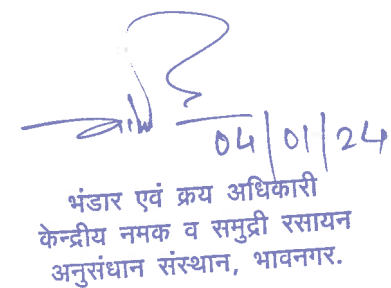 04/01/24
भंडार एवं क्रय अधिकारी
केन्द्रीय नमक व समुद्री रसायन
अनुसंधान संस्थान, भावनगर.